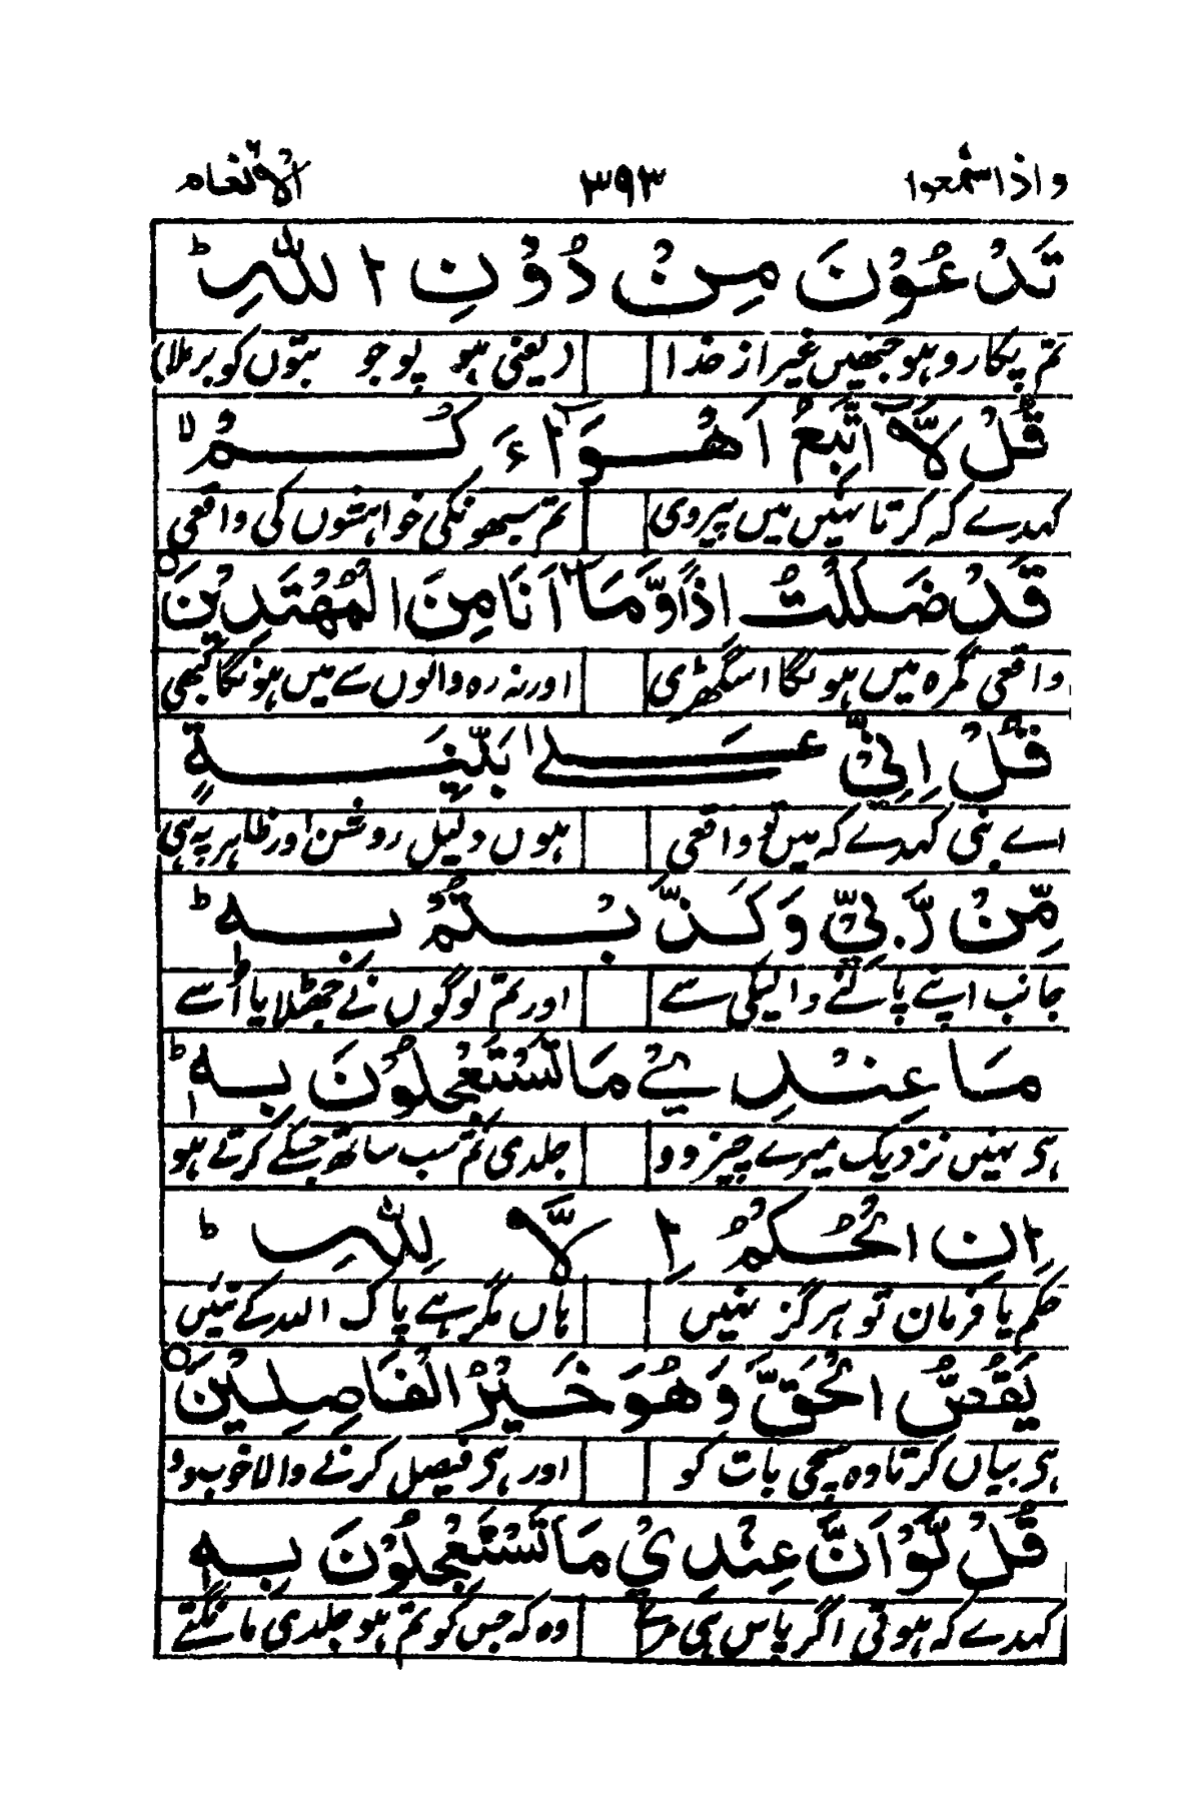 واذاسمعوا ۳۹۳ الانعام
تَدْعُوْنَ مِنْ دُوْنِ اللّٰهِ ؕ
تم پکارو ہو جنھیں غیر از خدا (یعنی ہو پوجو بتوں کو برملا)
قُلْ لَّاۤ اَتَّبِعُ اَهْوَآءَكُمْ ۙ
کہدے کہ کرتا نہیں میں پیروی تم سبھونکی خواہشوں کی واقعی
قَدْ ضَلَلْتُ اِذًا وَّمَاۤ اَنَا مِنَ الْمُهْتَدِيْنَ ○
واقعی گمرہ میں ہونگا اسگھڑی اور نہ رہ والوں سے میں ہونگا کبھی
قُلْ اِنِّيْ عَلٰى بَيِّنَةٍ
اے نبی کہدے کہ میں تو واقعی ہوں دلیل روشن اور ظاہر پہ ہی
مِّنْ رَّبِّيْ وَكَذَّبْتُمْ بِهٖ ؕ
جانب اپنے پالنے والیکی سے اور تم لوگوں نے جھٹلایا اُسے
مَا عِنْدِيْ مَا تَسْتَعْجِلُوْنَ بِهٖ ؕ
ہی نہیں نزدیک میرے چیز وو جلدی تم سب ساتھ جسکے کرتے ہو
اِنِ الْحُكْمُ اِلَّا لِلّٰهِ ؕ
حکم یا فرمان تو ہرگز نہیں ہاں مگر ہے پاک اللہ کے تئیں
يَقُصُّ الْحَقَّ وَهُوَ خَيْرُ الْفَاصِلِيْنَ ○
ہی بیاں کرتا وہ سچی بات کو اور ہی فیصل کرنے والا خوب وو
قُلْ لَّوْ اَنَّ عِنْدِيْ مَا تَسْتَعْجِلُوْنَ بِهٖ
کہدے کہ ہوتی اگر پاس ہی مرے وہ کہ جس کو تم ہو جلدی مانگتے